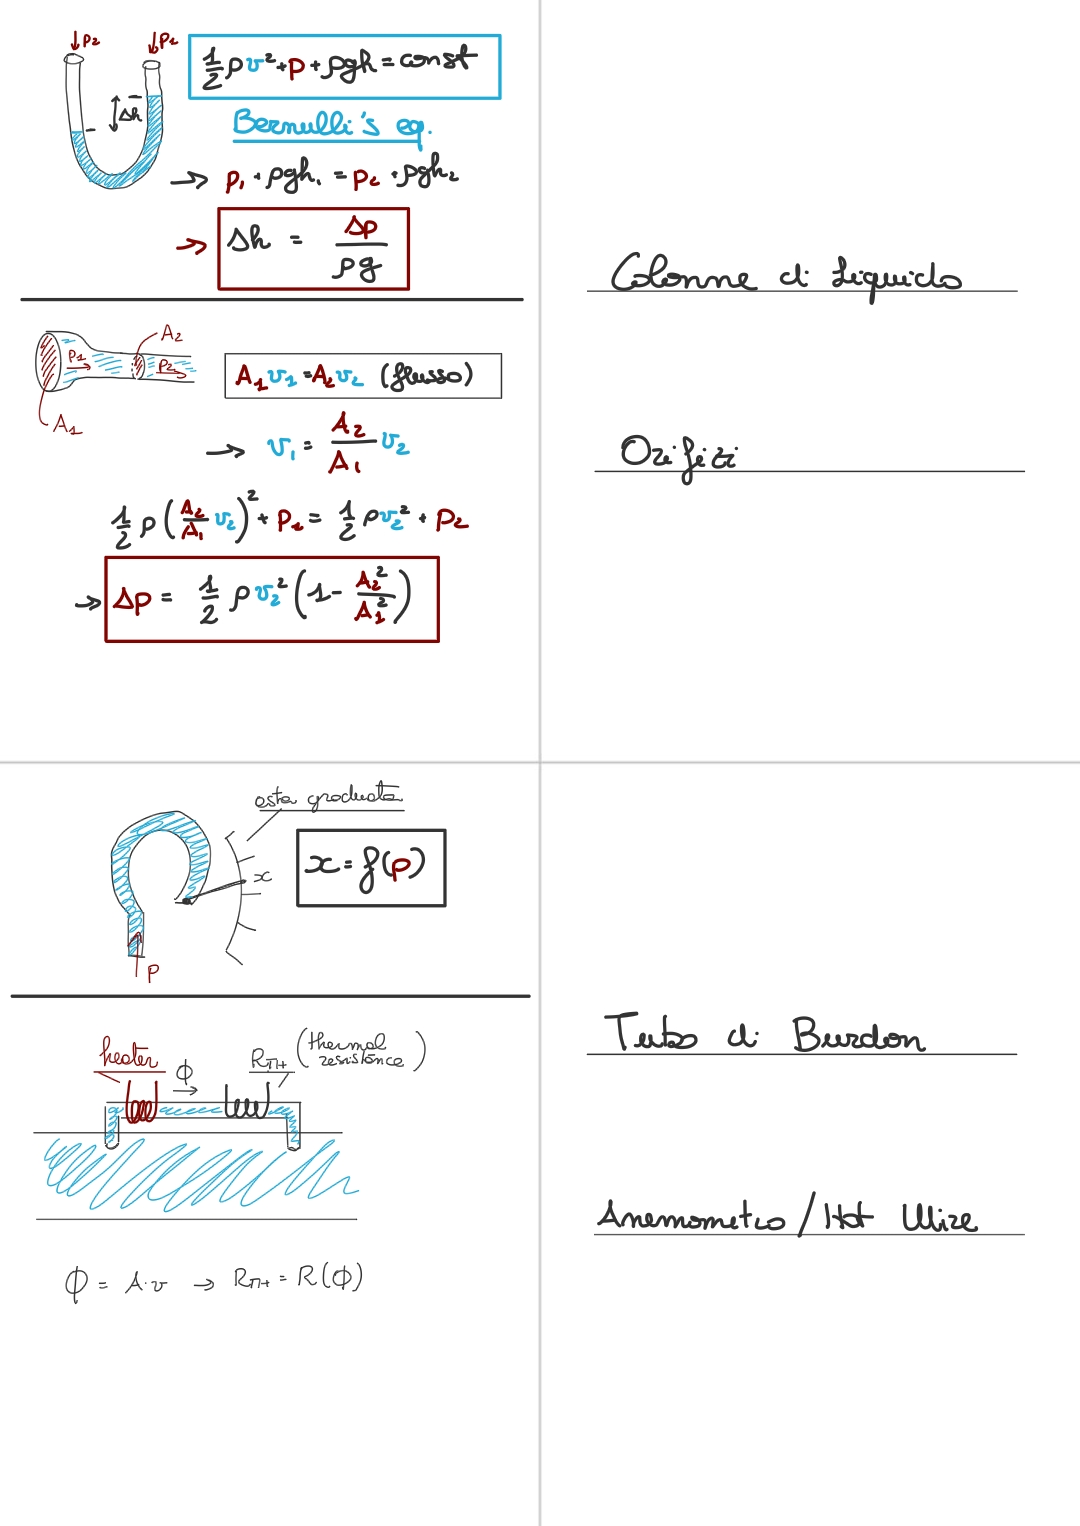 p₂ p₁
½ρv²+p+ρgh=const
Δh
Bernulli's eq.
→ p₁+ρgh₁=p₂+ρgh₂
→ Δh = Δp/ρg
Colonne di Liquido
A₂
P₁ P₂
A₁v₁=A₂v₂ (flusso)
A₁
→ v₁ = A₂/A₁ v₂
Orifizi
½ρ(A₂/A₁ v₂)²+P₁ = ½ρv₂²+P₂
→ Δp = ½ρv₂²(1-A₂²/A₁²)
asta graduata
x=f(p)
x
P
Tubo di Burdon
heater ϕ (thermal
resistance)
Anemometro / Hot Wire
ϕ = A·v →